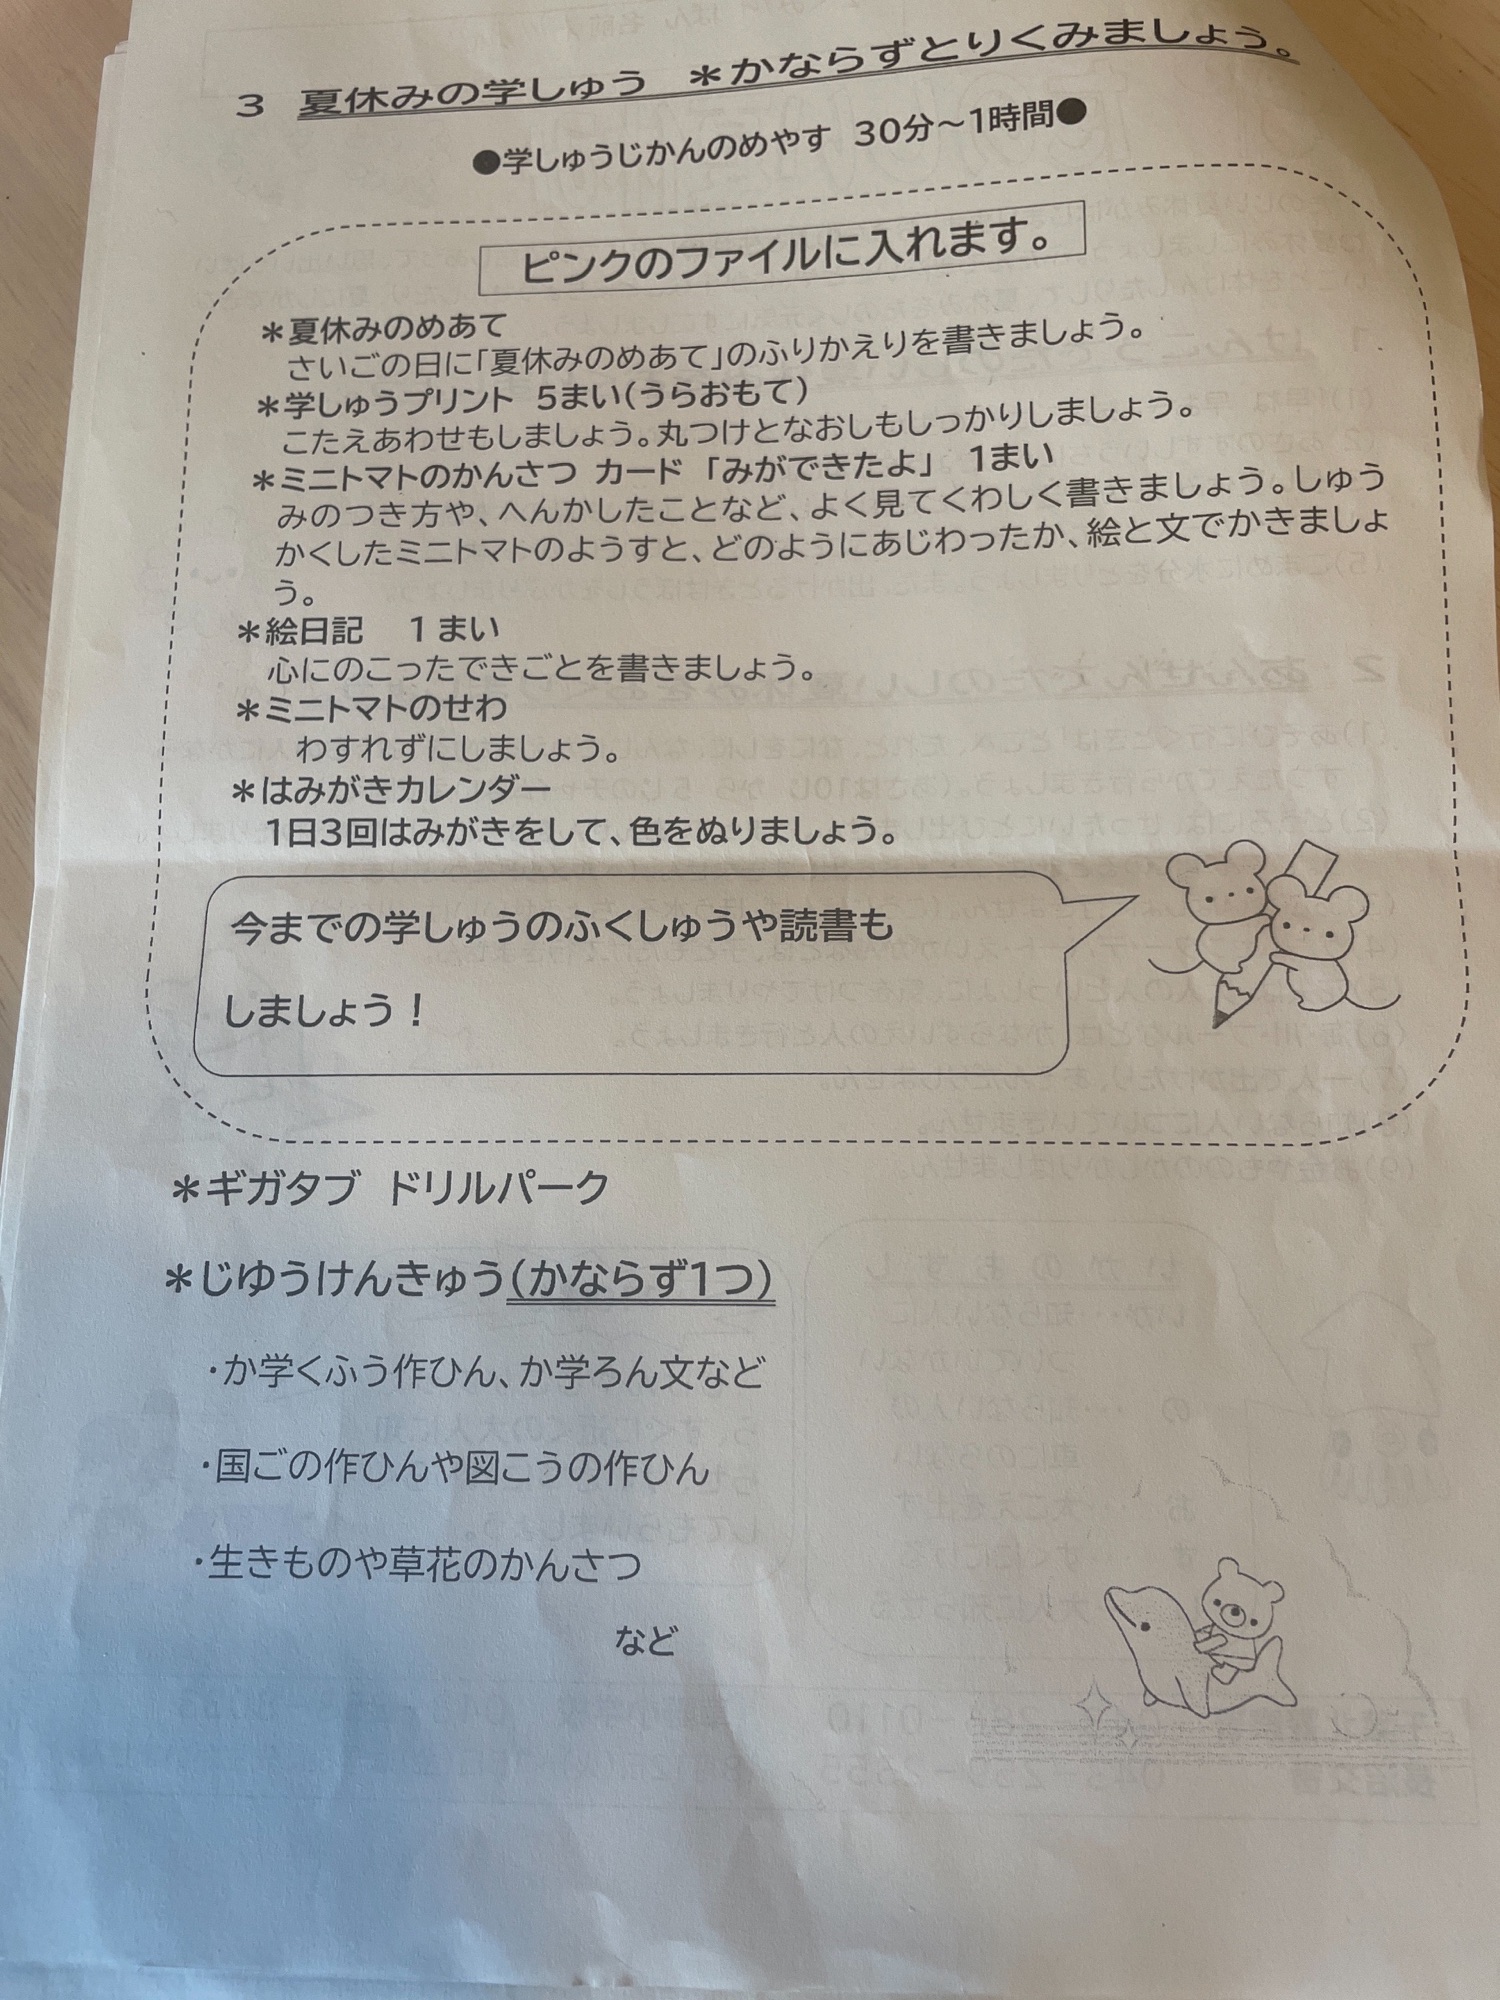 3 夏休みの学しゅう ＊かならずとりくみましょう。
●学しゅうじかんのめやす 30分～1時間●
ピンクのファイルに入れます。
＊夏休みのめあて
さいごの日に「夏休みのめあて」のふりかえりを書きましょう。
＊学しゅうプリント 5まい(うらおもて)
こたえあわせもしましょう。丸つけとなおしもしっかりしましょう。
＊ミニトマトのかんさつ カード 「みができたよ」 1まい
みのつき方や、へんかしたことなど、よく見てくわしく書きましょう。しゅう
かくしたミニトマトのようすと、どのようにあじわったか、絵と文でかきましょ
う。
＊絵日記 1まい
心にのこったできごとを書きましょう。
＊ミニトマトのせわ
わすれずにしましょう。
＊はみがきカレンダー
1日3回はみがきをして、色をぬりましょう。
今までの学しゅうのふくしゅうや読書も
しましょう！
＊ギガタブ ドリルパーク
＊じゆうけんきゅう(かならず1つ)
・か学くふう作ひん、か学ろん文など
・国ごの作ひんや図こうの作ひん
・生きものや草花のかんさつ
など